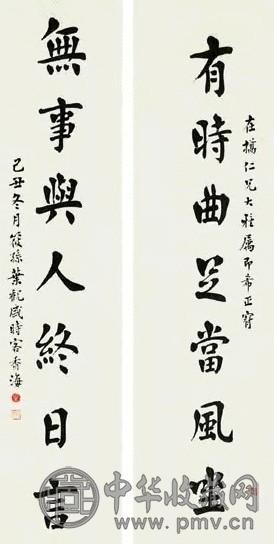 仁兄大雅屬即希正
有時曲足當風坐
無事與人終日言
己丑冬月筱孫葉觀盛時客香海
中华收藏网
www.pmv.cn